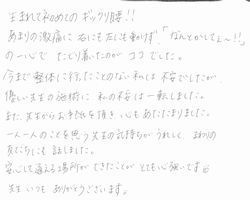 生まれて初めてのギックリ腰!!
あまりの激痛に右にも左にも動けず、「なんとかしてぇ〜!!」
の一心でたどり着いたのがココでした。
今まで整体に行ったことのない私は不安でしたが、
優しい先生の施術に私の不安は一転しました。
また、先生からお手紙を頂き心もあたたまりました。
一人一人のことを思う先生の気持ちがうれしくて、まわりの
友だちにも話しました。
安心して通える場所ができたことがとても心強いです
先生いつもありがとうございます。